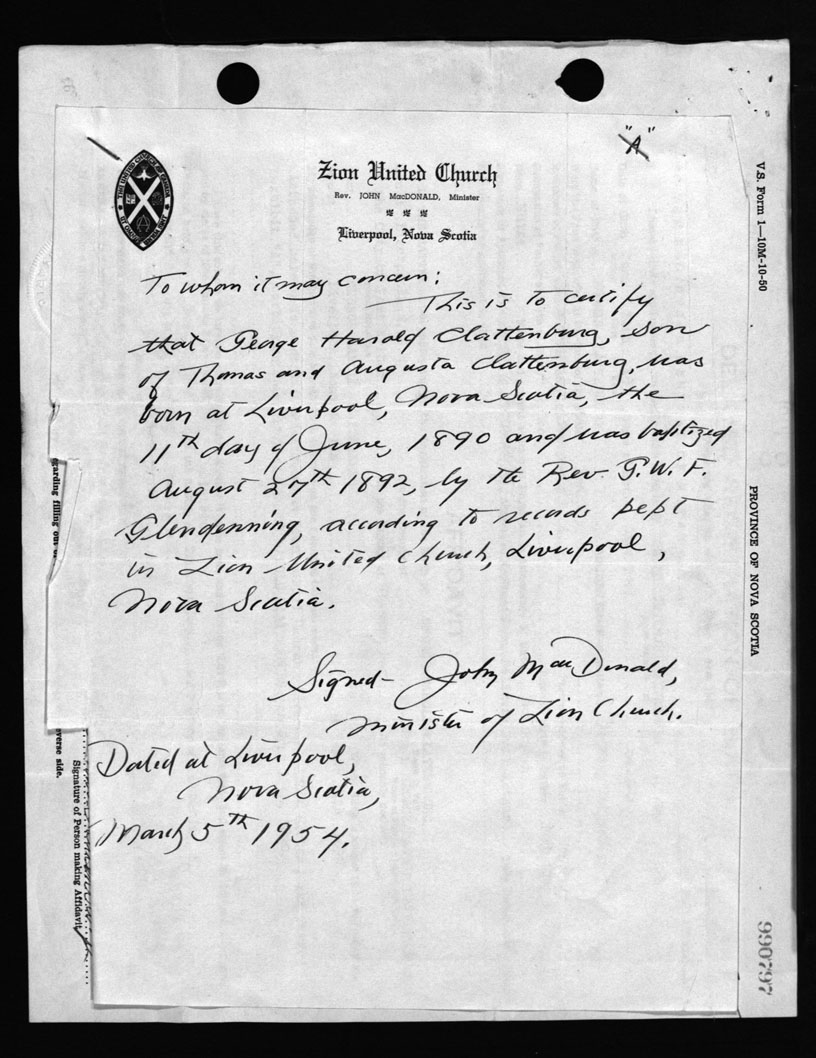 "A"
Zion United Church
Rev. JOHN MacDONALD, Minister
Liverpool, Nova Scotia
To whom it may concern:
This is to certify
that George Harold Clattenburg, son
of Thomas and Augusta Clattenburg, was
born at Liverpool, Nova Scotia, the
11th day of June, 1890 and was baptized
August 27th 1892, by the Rev. G. W. F.
Glendenning, according to records kept
in Zion United Church, Liverpool,
Nova Scotia.
Signed- John MacDonald,
Minister of Zion Church.
Dated at Liverpool,
Nova Scotia,
March 5th 1954.
V.S. Form 1—10M-10-50
PROVINCE OF NOVA SCOTIA
990797
garding filling out
everse side.
Signature of Person making Affidavit